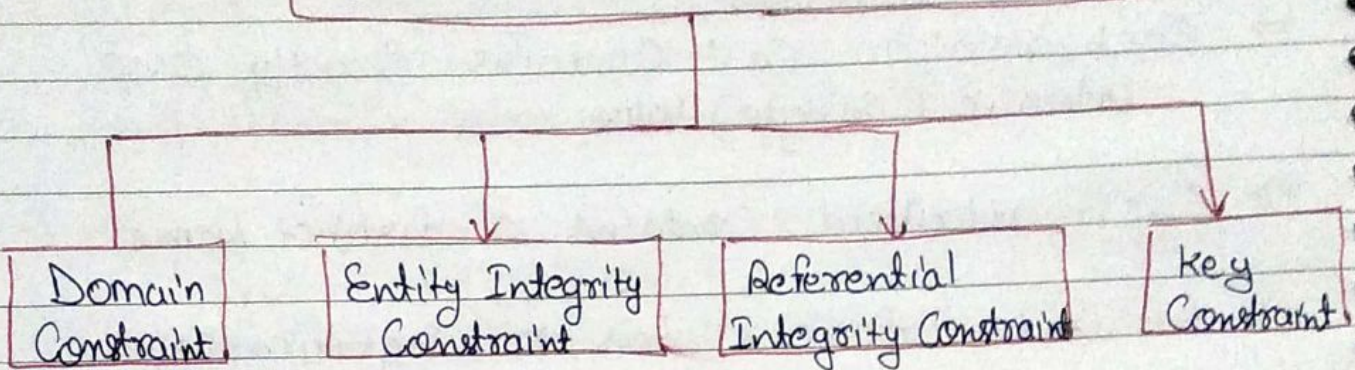 Domain
Constraint
Entity Integrity
Constraint
Referential
Integrity Constraint
Key
Constraint